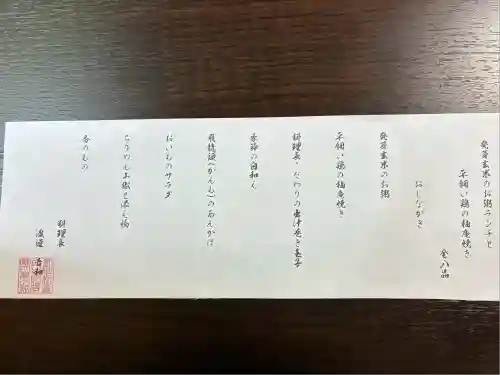 発芽玄米のお粥ランチと
平飼い鶏の柚庵焼き
全八品
おしながき
発芽玄米のお粥
平飼い鶏の柚庵焼き
料理長こだわりの出汁巻き玉子
季節の白和え
飛龍頭(がんも)のあんかけ
おいものサラダ
ちりめん山椒と添え物
香のもの
料理長
渡邊